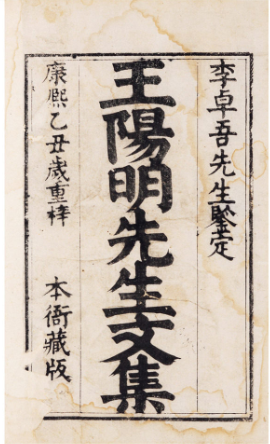 李卓吾先生鑒定
王陽明先生文集
康熙乙丑歲重梓
本衙藏版